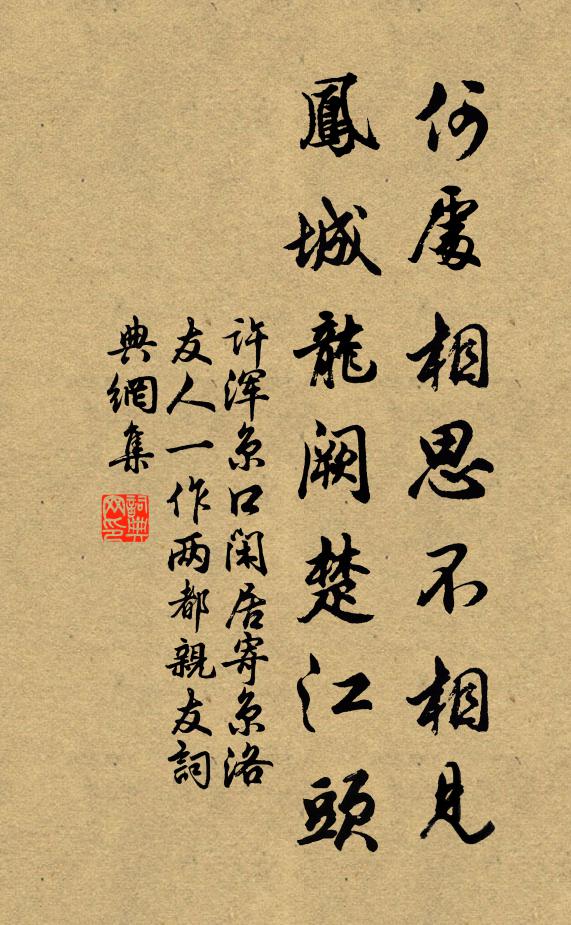 何處相思不相見
鳳城龍闕楚江頭
许渾京口閑居寄京洛
友人一作两都親友詞
典網集
詞典網印